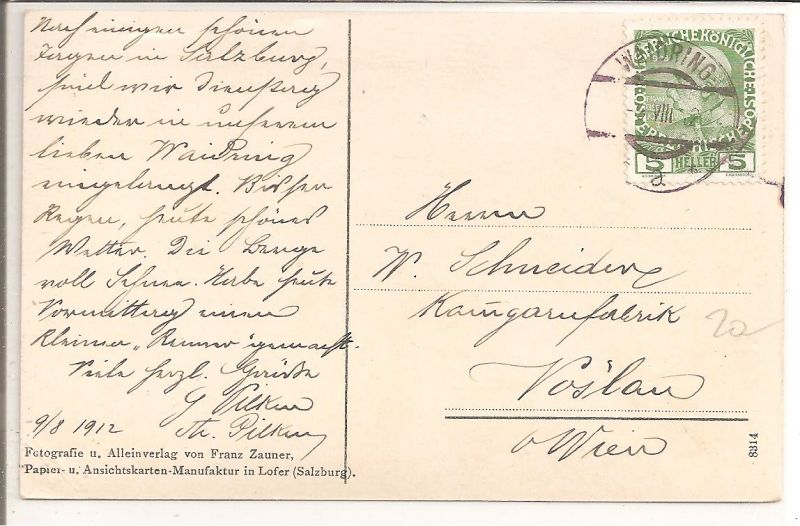 Nach einigen schönen
Tagen in Salzburg,
sind wir Dienstag
wieder in unserem
lieben Waidring
eingelangt. Bisher
Regen, heute schönes
Wetter. Die Berge
voll Schnee. Habe heute
Vormittag einen
kleinen „Renner" gemacht.
Viele herzl. Grüße
9/8 1912
Fotografie u. Alleinverlag von Franz Zauner,
Papier- u. Ansichtskarten-Manufaktur in Lofer (Salzburg).
KAISERLICHE KÖNIGLICHE ÖSTERREICHISCHE POST
WAIDRING
VIII
5 HELLER 5
a
Herrn
W. Schneider
Kam̄garnfabrik
Vöslau
b/Wien
20
8314